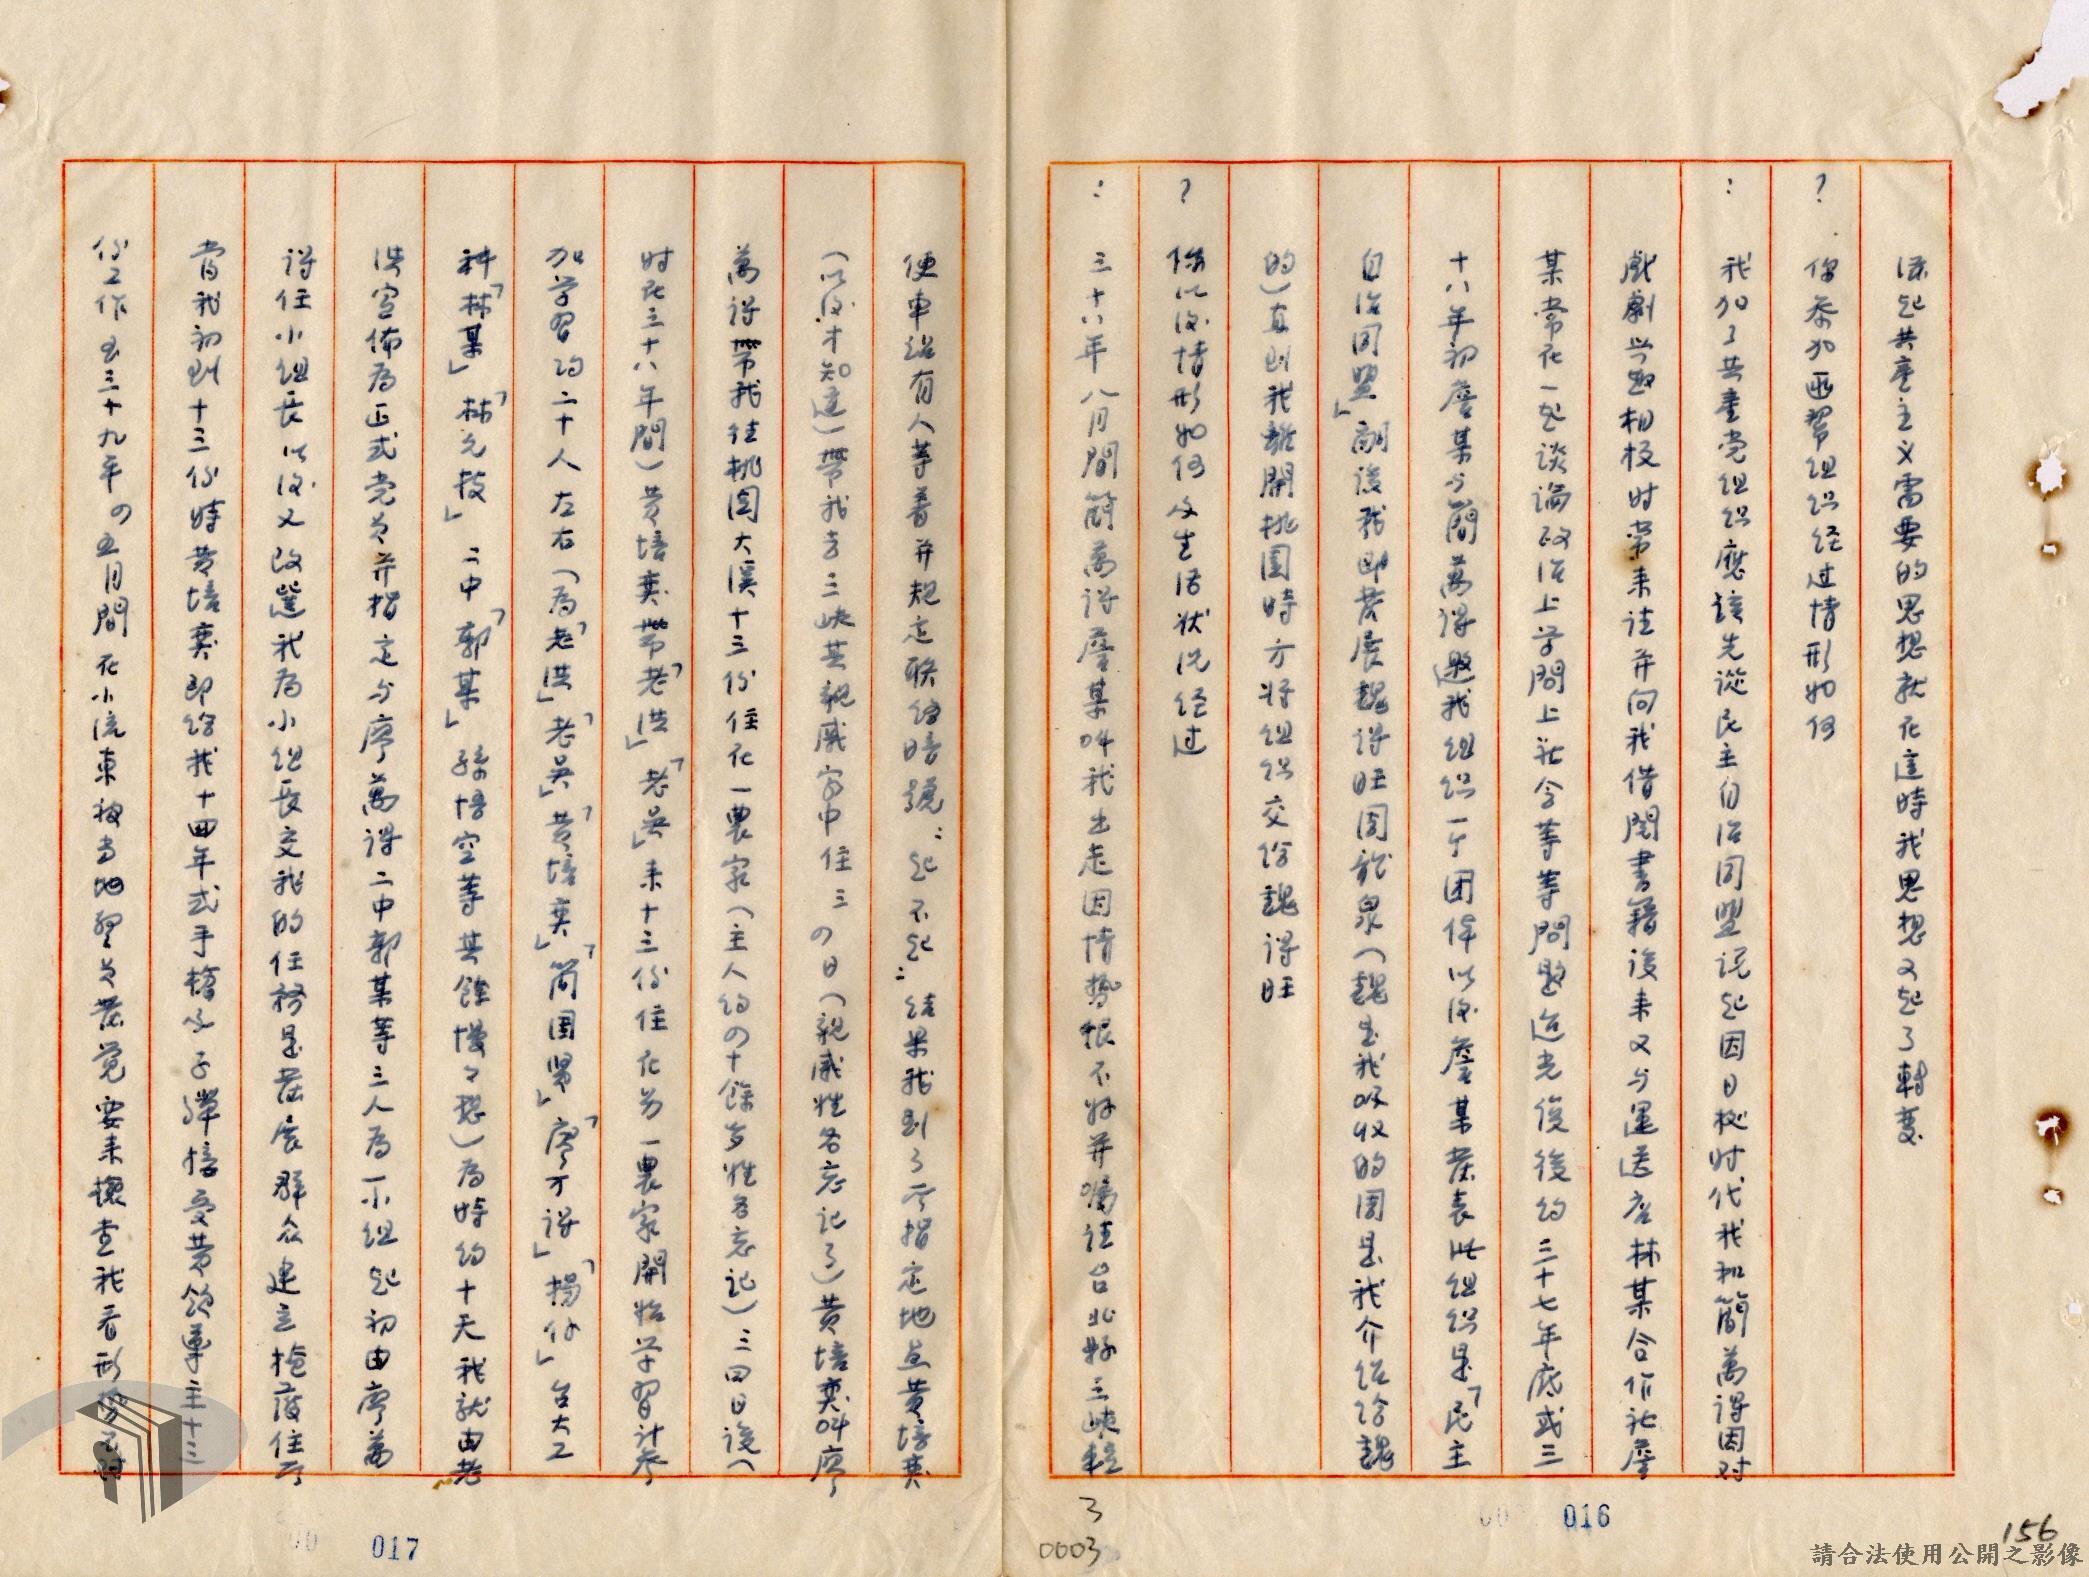 深起共產主义需要的思想就在這時我思想又起了轉变
? 你参加匪幫組织经过情形如何
: 我加了共產党組织應該先從民主自治同盟说起因日据时代我和簡萬得因对
戲劇兴趣相投时常来往并向我借閱書籍後来又与運送店林某合作社詹
某常在一起談論政治上学問上社会等等問題迨光復後约三十七年底或三
十八年初詹某与簡萬得邀我組织一个团体以後詹某发表此組织是「民主
自治同盟」嗣後我即发展魏得旺周龍泉(魏是我吸收的周是我介绍给魏
的)直到我離開桃園時方将組织交给魏得旺
? 你以後情形如何及生活状况经过
: 三十八年八月間簡萬得詹某叫我出走因情势很不好并嘱往台北縣三峡輕
便車站有人等着并規定聯络暗號:起不起:结果我到了所指定地点黄培奕
(以後才知道)帶我去三峡其親戚家中住三四日(親戚姓名忘记了)黄培奕叫廖
萬得帶我往桃園大溪十三份住在一農家(主人约四十餘岁姓名忘記)三四日後(
时在三十八年間)黄培奕帶「老洪」「老吳」来十三份住在另一農家開始学習計参
加学習约二十人左右(為「老洪」「老吳」「黄培奕」「簡国贤」「廖万得」「楊仔」台大工
科「林某」「林元枝」二中「郭某」孫悟空等其餘慢々想)為時约十天我就由老
洪宣佈為正式党员并指定与廖萬得二中郭某等三人為一小组起初由廖萬
得任小组長以後又改選我為小组長交我的任務是发展群众建立掩護住所
當我初到十三份時黄培奕即给我十四年式手槍 子彈 受黄领導主十三
份工作至三十九年四五月間在小流東被当地警员发觉要来搜查我看形势不对
017
016
3
0003
156
請合法使用公開之影像